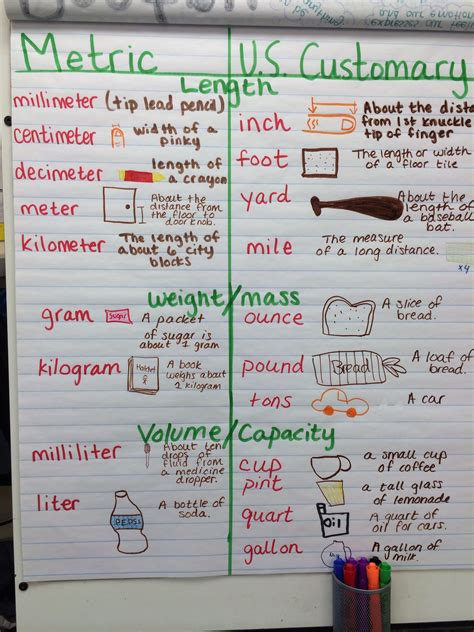 Metric
U.S. Customary
Length
millimeter (tip lead pencil)
centimeter width of a
pinky
decimeter length of
a crayon
meter About the
distance from
the floor to
door knob.
kilometer The length of
about 6 city
blocks
inch About the dista
from 1st knuckle
tip of finger
foot The length or width
of a floor tile
yard About the
length of
a baseball
bat.
mile The measure
of a long distance.
x4
weight/mass
gram sugar A packet
of sugar is
about 1 gram
kilogram A book
weighs about
1 kilogram
ounce A slice of
bread.
pound Bread A loaf of
bread.
tons A car
Volume/Capacity
milliliter About ten
drops of
fluid from
a medicine
dropper.
liter PEPSI A bottle of
soda.
cup a small cup of
coffee
pint a tall glass
of lemonade
quart Oil A quart of
oil for cars.
gallon A gallon of
milk.